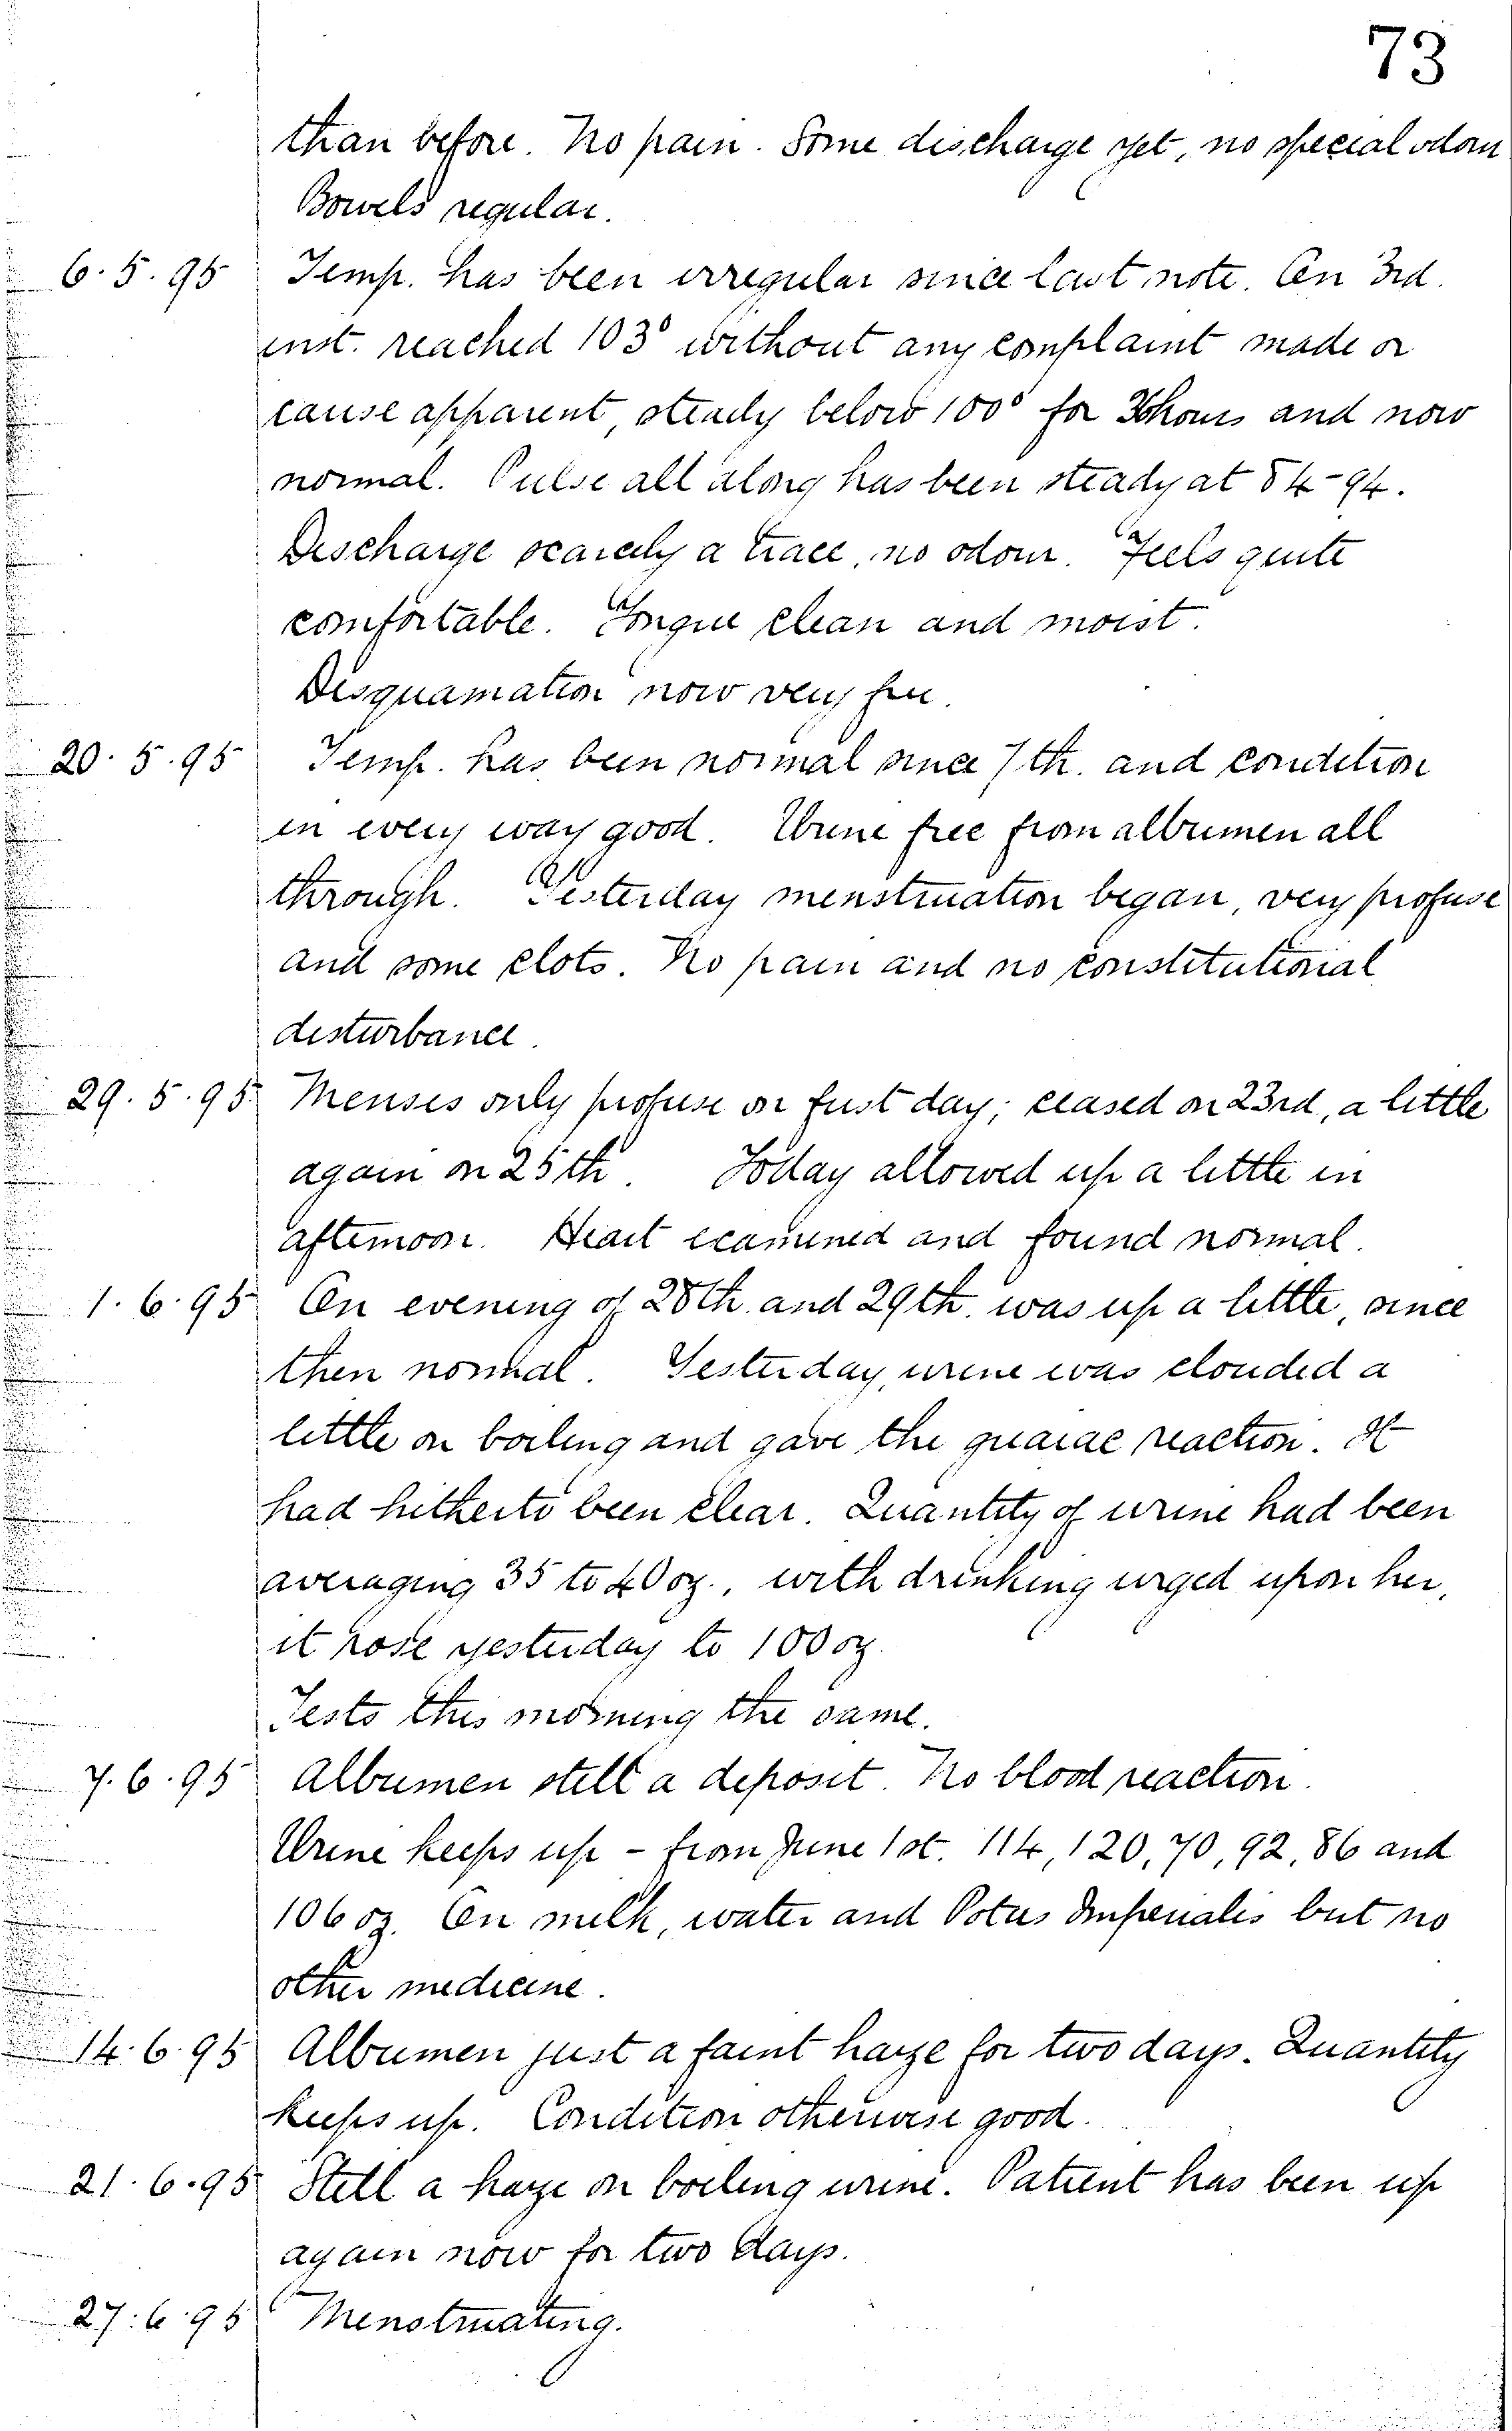 73
than before. No pain. Some discharge yet, no special odour
Bowels regular.
6.5.95 Temp. has been irregular since last note. On 3rd.
inst. reached 103° without any complaint made or
cause apparent, steady below 100° for hours and now
normal. Pulse all along has been steady at 84-94.
Discharge scarcely a trace, no odour. Feels quite
comfortable. Tongue clean and moist.
Desquamation now very free.
20.5.95 Temp. has been normal since 7th. and condition
in every way good. Urine free from albumen all
through. Yesterday menstruation began, very profuse
and some clots. No pain and no constitutional
disturbance.
29.5.95 Menses only profuse on first day; ceased on 23rd, a little
again on 25th. Today allowed up a little in
afternoon. Heart examined and found normal.
1.6.95 On evening of 28th. and 29th. was up a little, since
then normal. Yesterday, urine was clouded a
little on boiling and gave the guaiac reaction. It
had hitherto been clear. Quantity of urine had been
averaging 35 to 40 oz., with drinking urged upon her,
it rose yesterday to 100 oz.
Tests this morning the same.
7.6.95 Albumen still a deposit. No blood reaction.
Urine keeps up - from June 1st. 114, 120, 70, 92, 86 and
106 oz. On milk, water and Potus Imperialis but no
other medicine.
14.6.95 Albumen just a faint haze for two days. Quantity
keeps up. Condition otherwise good.
21.6.95 Still a haze on boiling urine. Patient has been up
again now for two days.
27.6.95 Menstruating.